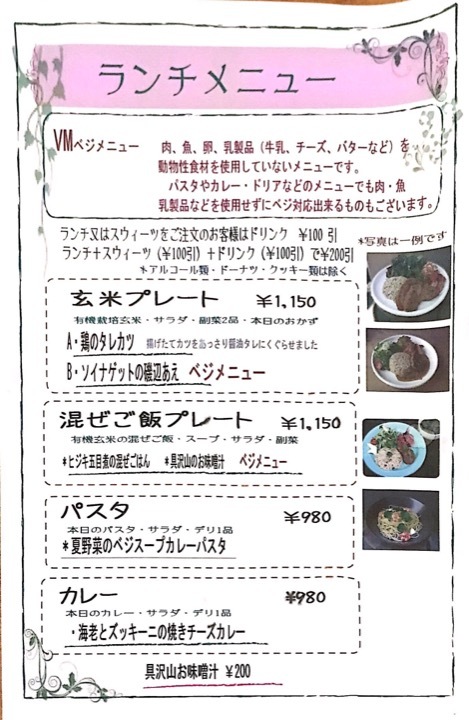 ランチメニュー
VMベジメニュー 肉、魚、卵、乳製品（牛乳、チーズ、バターなど）を
動物性食材を使用していないメニューです。
パスタやカレー・ドリアなどのメニューでも肉・魚
乳製品などを使用せずにベジ対応出来るものもございます。
ランチ又はスウィーツをご注文のお客様はドリンク ¥100 引
ランチ＋スウィーツ（¥100引）＋ドリンク（¥100引）で¥200引
*アルコール類・ドーナツ・クッキー類は除く
*写真は一例です
玄米プレート ¥1,150
有機栽培玄米・サラダ・副菜2品・本日のおかず
A・鶏のタレカツ 揚げたてカツをあっさり醤油タレにくぐらせました
B・ソイナゲットの磯辺あえ ベジメニュー
混ぜご飯プレート ¥1,150
有機玄米の混ぜご飯・スープ・サラダ・副菜
*ヒジキ五目煮の混ぜごはん *具沢山のお味噌汁 ベジメニュー
パスタ ¥980
本日のパスタ・サラダ・デリ1品
*夏野菜のベジスープカレーパスタ
カレー ¥980
本日のカレー・サラダ・デリ1品
・海老とズッキーニの焼きチーズカレー
具沢山お味噌汁 ¥200